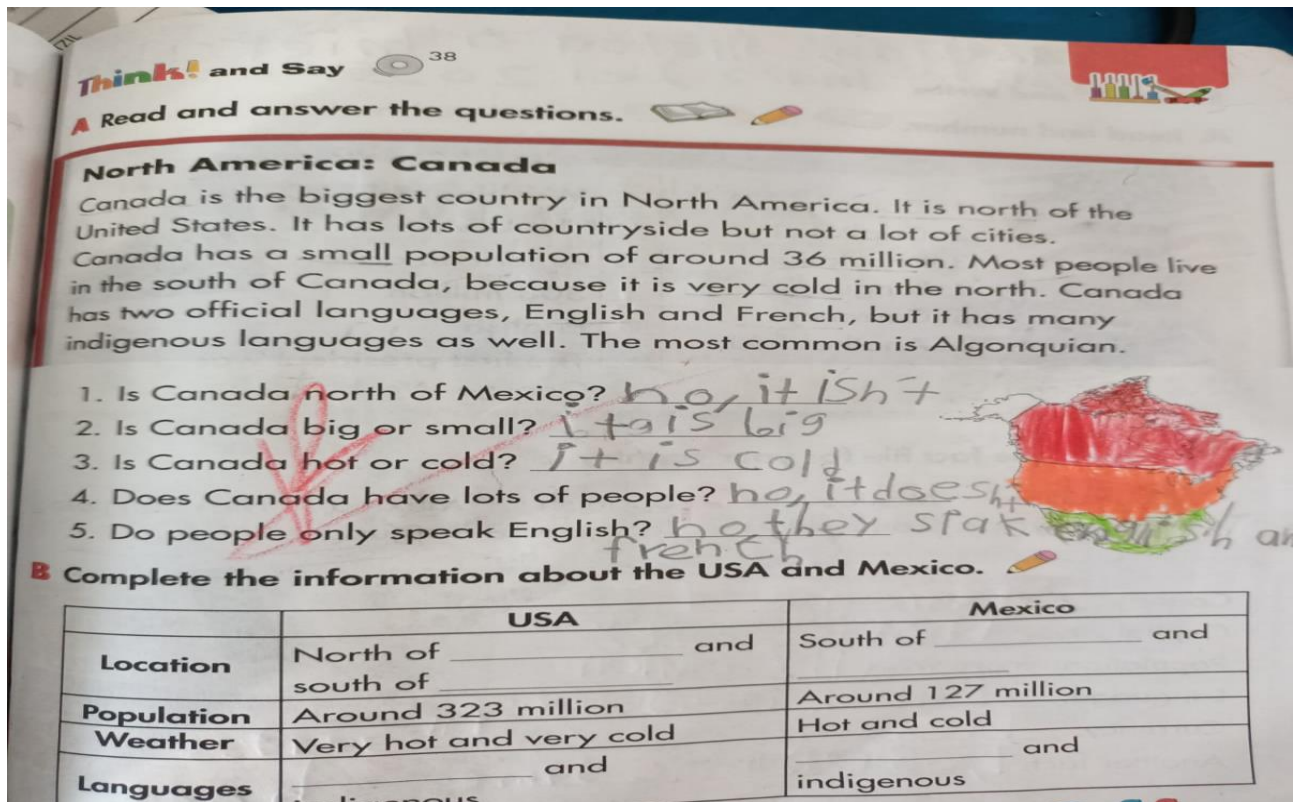 Think! and Say 38
A Read and answer the questions.
North America: Canada
Canada is the biggest country in North America. It is north of the
United States. It has lots of countryside but not a lot of cities.
Canada has a small population of around 36 million. Most people live
in the south of Canada, because it is very cold in the north. Canada
has two official languages, English and French, but it has many
indigenous languages as well. The most common is Algonquian.
1. Is Canada north of Mexico? no, it isn't
2. Is Canada big or small? is big
3. Is Canada hot or cold? it is cold
4. Does Canada have lots of people? no, it doesn't
5. Do people only speak English? no they spak english an
french
B Complete the information about the USA and Mexico.
USA Mexico
Location North of ____ and South of ____ and
south of ____
Population Around 323 million Around 127 million
Weather Very hot and very cold Hot and cold
Languages ____ and ____ and
indigenous indigenous